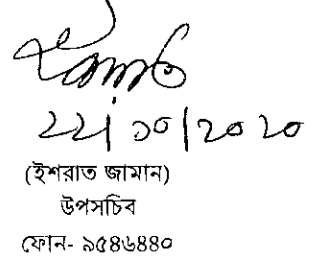 ২২/১০/২০২০
(ইশরাত জামান)
উপসচিব
ফোন- ৯৫৪৬৪৪০